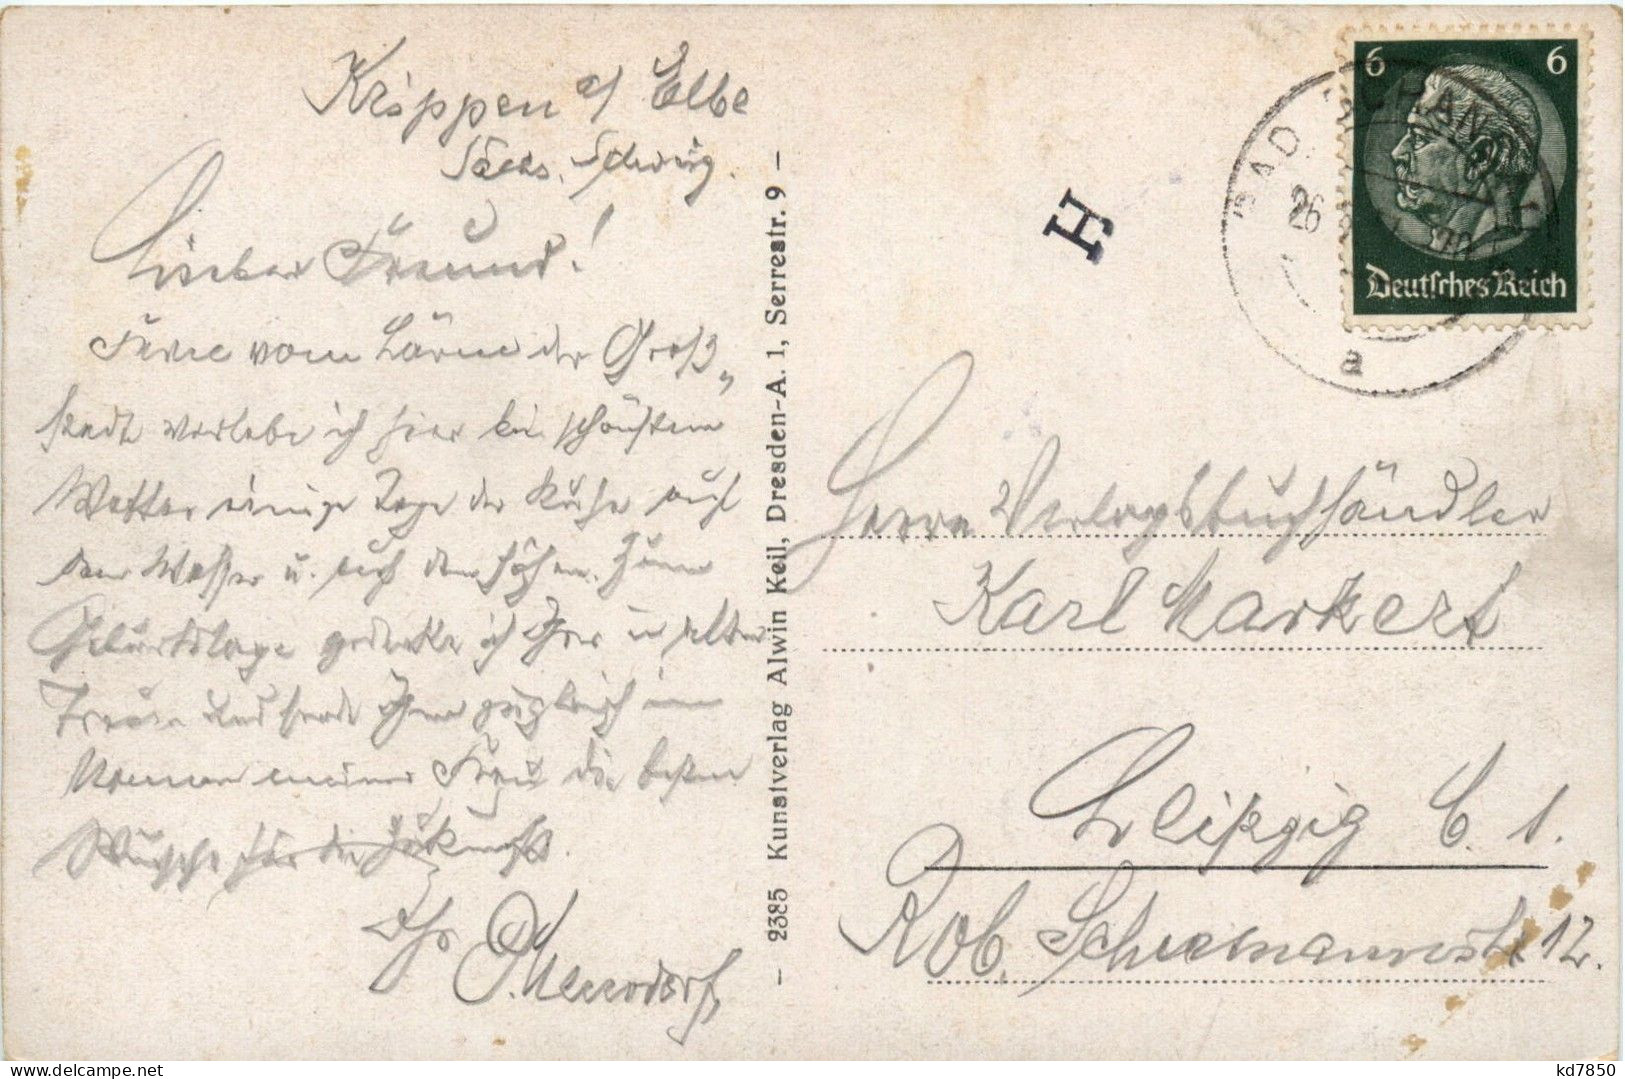 Krippen a/ Elbe
Sächs. Schweiz.
Lieber Freund!
Ferne vom Lärme der Groß„
stadt verlebe ich hier bei schönstem
Wetter einige Tage der Ruhe auf
dem Wasser u. auf den Höhen. Zum
Geburtstage gedenke ich Ihrer in alter
Treue und sende Ihnen zugleich im
Namen meiner Frau die besten
Wünsche für die Zukunft.
Ihr
2385 Kunstverlag Alwin Keil, Dresden-A. 1, Serrestr. 9
6 6
Deutsches Reich
BAD SCHANDAU
26
a
H
Herrn Verlagsbuchhändler
Karl Markert
Leipzig C. 1.
Rob. Schumannstr. 12.
kd7850